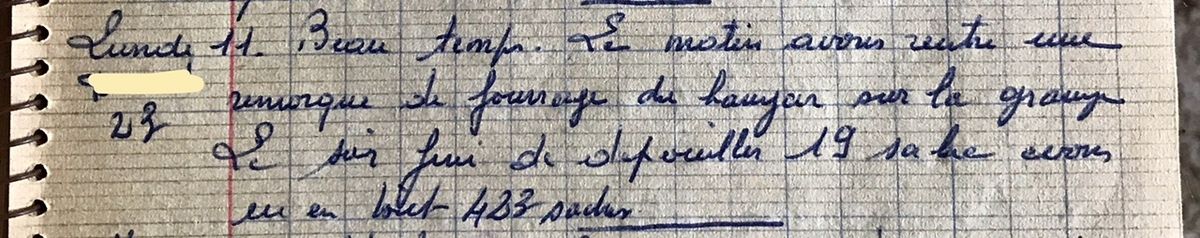 Lundi 11. Beau temps. Le matin avons rentré une
remorque de fourrage du hangar sur la grange
23
Le soir fini de dépouiller 19 sa bac avons
eu en tout 423 sachs